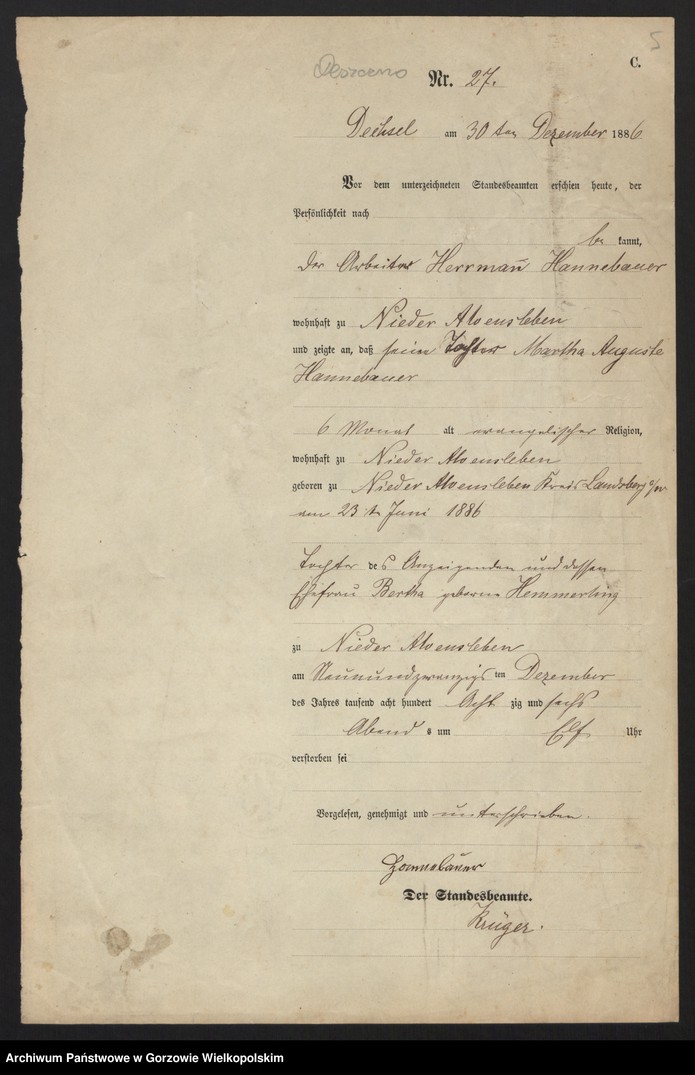 5
C.
Nr. 27.
Dechsel am 30 ten Dezember 1886
Vor dem unterzeichneten Standesbeamten erschien heute, der
Persönlichkeit nach
be kannt,
der Arbeiter Herrmann Hannebauer
wohnhaft zu Nieder Alvensleben
und zeigte an, daß seine Tochter Martha Auguste
Hannebauer
6 Monat alt evangelischer Religion,
wohnhaft zu Nieder Alvensleben
geboren zu Nieder Alvensleben Kreis Landsberg a/W
am 23 t Juni 1886
Tochter des Anzeigenden und dessen
Ehefrau Bertha geborene Hemmerling
zu Nieder Alvensleben
am Neunundzwanzigs ten Dezember
des Jahres tausend acht hundert Acht zig und sechs
Abend s um Elf Uhr
verstorben sei
Vorgelesen, genehmigt und unterschrieben.
Hannebauer
Der Standesbeamte.
Krüger.
Archiwum Państwowe w Gorzowie Wielkopolskim